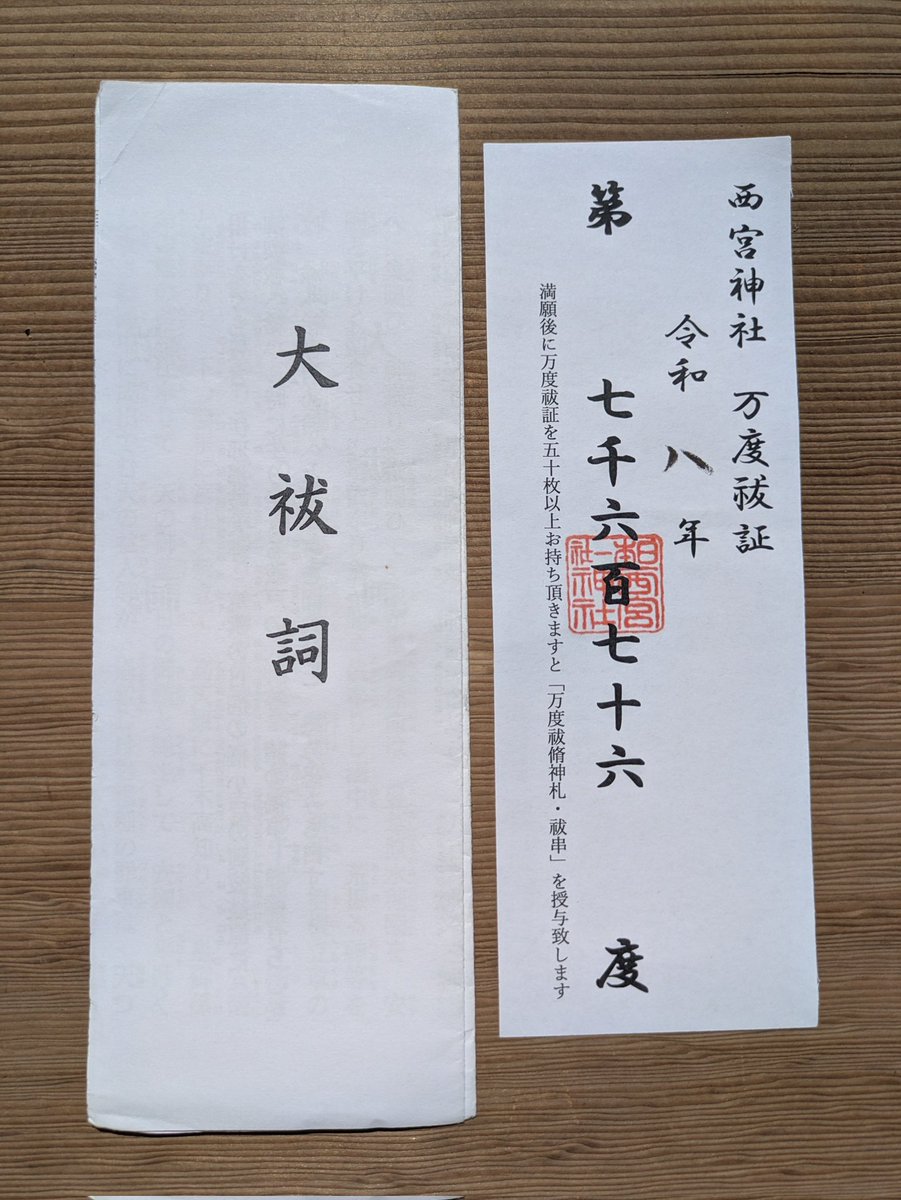 大祓詞
西宮神社 万度祓証
令和八年
第 七千六百七十六 度
満願後に万度祓証を五十枚以上お持ち頂きますと「万度祓脩神札・祓串」を授与致します